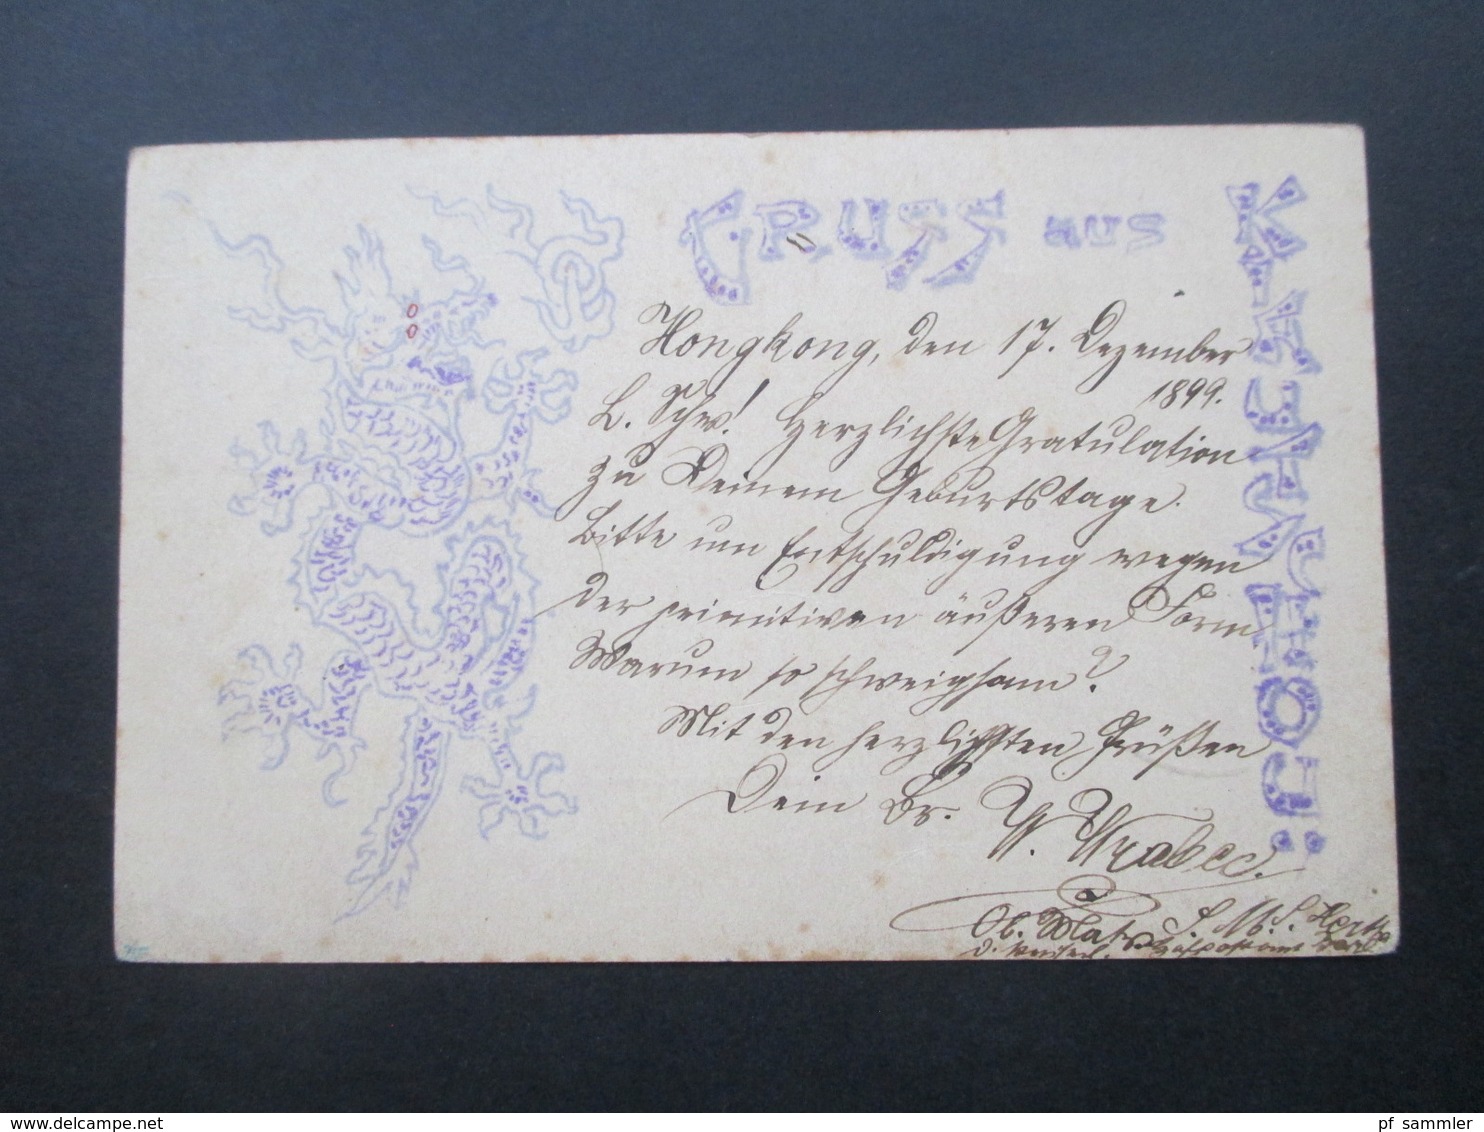 GRUSS aus
KIAUTSCHOU:
Hongkong, den 17. Dezember
1899.
L. Schw! Herzlichste Gratulation
zu Deinem Geburtstage.
Bitte um Entschuldigung wegen
der primitiven äußeren Form
Warum so schweigsam?
Mit den herzlichsten Grüßen
Dein Br. W.
Ob. Mat. S. M. S. Hertha
d. Marinepostamt Berlin
pf sammler